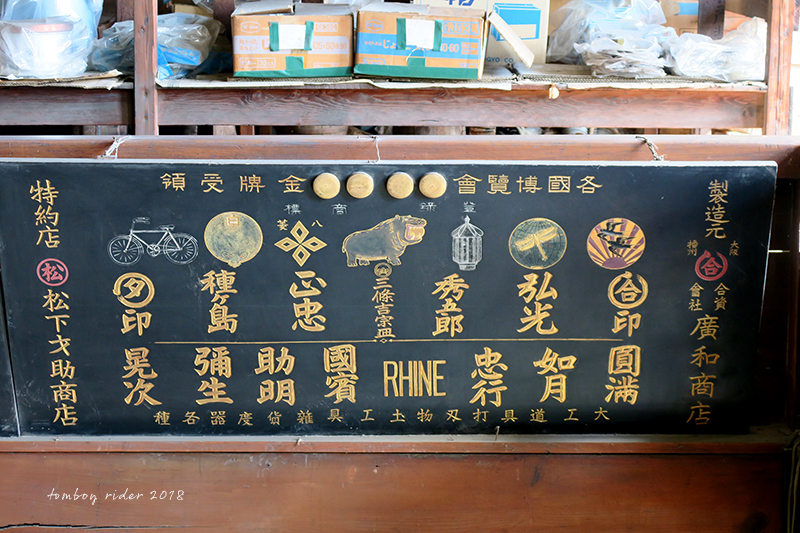 製造元
大阪
播州
合
合資
會社
廣和商店
各國博覽會
金牌受領
登録商標
合印
弘光
秀五郎
三條吉宗
正忠
種ヶ島
夕印
圓滿
如月
忠行
RHINE
國賓
助明
彌生
晃次
大工道具打刃物土工具雜貨度器各種
特約店
松
松下弌助商店
tomboy rider 2018